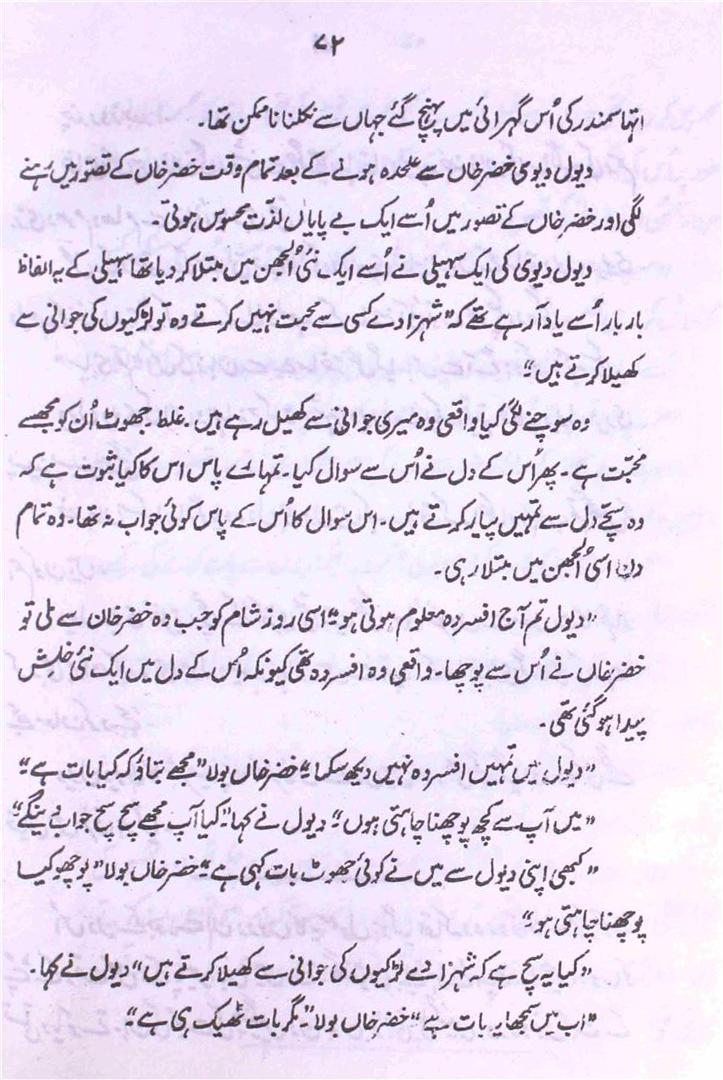 ۷۲
انتہا سمندر کی اُس گہرائی میں پہنچ گئے جہاں سے نکلنا ناممکن تھا۔
دیول دیوی خضر خاں سے علٰحدہ ہونے کے بعد تمام وقت خضر خاں کے تصور میں رہنے
لگی اور خضر خاں کے تصور میں اُسے ایک بے پایاں لذّت محسوس ہوتی۔
دیول دیوی کی ایک سہیلی نے اُسے ایک نئی اُلجھن میں مبتلا کر دیا تھا سہیلی کے یہ الفاظ
بار بار اُسے یاد آرہے تھے کہ ”شہزادے کسی سے محبت نہیں کرتے وہ تو لڑکیوں کی جوانی سے
کھیلا کرتے ہیں“
وہ سوچنے لگی کیا واقعی وہ میری جوانی سے کھیل رہے ہیں۔ غلط۔ جھوٹ اُن کو مجھسے
محبّت ہے۔ پھر اُس کے دل نے اُس سے سوال کیا۔ تمہارے پاس اس کا کیا ثبوت ہے کہ
وہ سچّے دل سے تمہیں پیار کرتے ہیں۔ اس سوال کا اُس کے پاس کوئی جواب نہ تھا۔ وہ تمام
دن اسی اُلجھن میں مبتلا رہی۔
”دیول تم آج افسردہ معلوم ہوتی ہو“ اسی روز شام کو جب وہ خضر خان سے ملی تو
خضر خاں نے اُس سے پوچھا۔ واقعی وہ افسردہ تھی کیونکہ اُس کے دل میں ایک نئی خلیش
پیدا ہو گئی تھی۔
”دیول میں تمہیں افسردہ نہیں دیکھ سکتا“ خضر خاں بولا ”مجھے بتاؤ کہ کیا بات ہے“
”میں آپ سے کچھ پوچھنا چاہتی ہوں“ دیول نے کہا۔ ”کیا آپ مجھے سچ سچ جواب دینگے“
”کبھی اپنی دیول سے میں نے کوئی جھوٹ بات کہی ہے“ خضر خاں بولا ”پوچھو کیا
پوچھنا چاہتی ہو“
”کیا یہ سچ ہے کہ شہزادے لڑکیوں کی جوانی سے کھیلا کرتے ہیں“ دیول نے کہا۔
”اب میں سمجھا یہ بات ہے“ خضر خاں بولا ”۔ مگر بات ٹھیک ہی ہے“